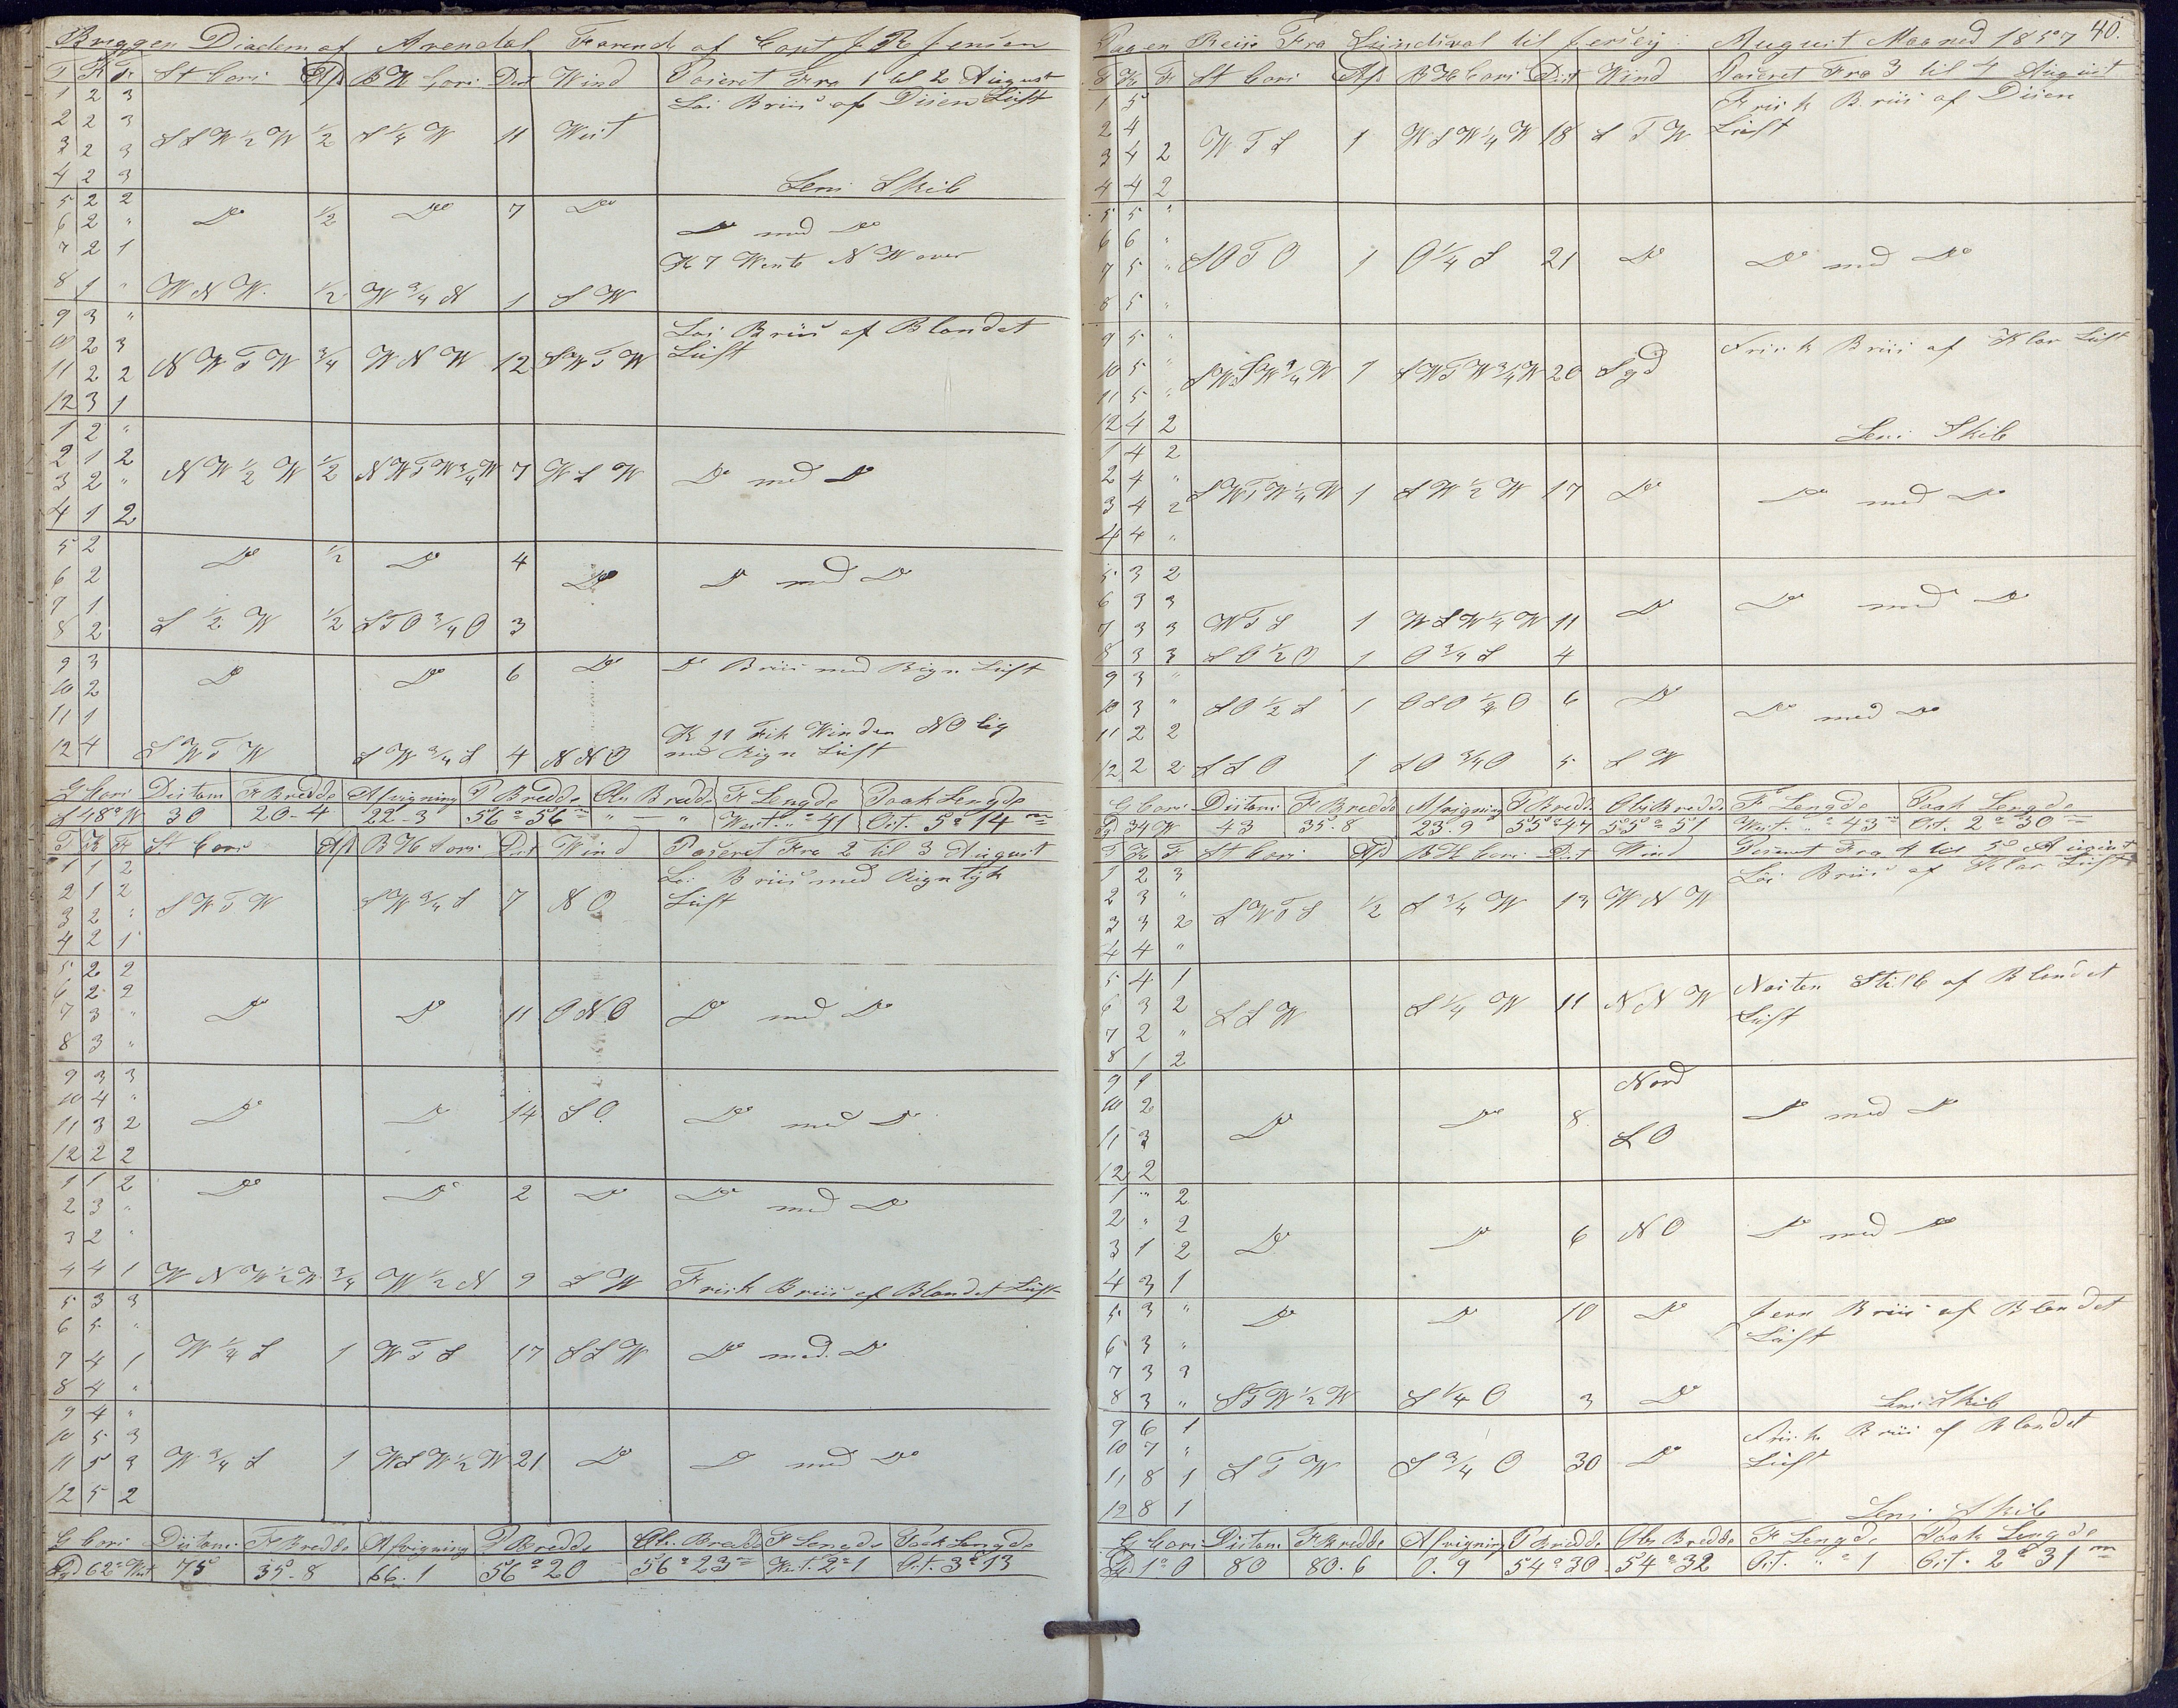 Briggen Diadem af Arendal Førende af Capt J R Jensen
T K F St Cors Afd B H Cors Dist Wind Paseret Fra 1 til 2 August
1 2 3 Lai Briis af Diisen Lüft
2 2 3
3 2 3 S S W ½ W ½ S ¼ W 11 West
4 2 3 Lens Skib
5 2 2 Do ½ Do 7 Do
6 2 " Do med Do
7 2 1 Kl 7 Wente N W over
8 1 " W N W ½ W ¾ N 1 S W
9 3 " Lai Briis af Blandet
10 2 3 Lüft
11 2 2 N W T W ¾ W N W 12 S W T W
12 3 1
1 2 "
2 1 2
3 2 " N W ½ W ½ N W T W ¾ W 7 W S W Do med Do
4 1 2
5 2 Do ½ Do 4
6 2 Do Do med Do
7 1
8 2 S ½ W ½ S T O ¾ O 3
9 3 Do Do 6 Do Do Briis med Rign Lüft
10 2
11 1 Kl 11 Fik Winden N O lig
12 4 S W T W S W ¾ S 4 N N O med Rign Lüft
G Cors Distans F Bredde Afvigning P Bredde Obs Bredde F Lengde Paak Lengde
S 48° W 30 20-4 22-3 56° 56 " — " West " 41 Ost. 5° 14
T K F St Cors Afd B H Cors Dist Wind Paseret Fra 2 til 3 August
1 1 2 Lai Briis med Rign tyk
2 1 2 Lüft
3 2 " S W T W S W ¾ S 7 N O
4 2 1
5 2 2
6 2 2
7 3 " Do Do 11 O N O Do med Do
8 3 "
9 3 3
10 4 "
11 3 2 Do Do 14 S O Do med Do
12 2 2
1 1 2 Do Do 2 Do Do med Do
2 3 "
3 2 "
4 4 1 W N W ½ W ¾ W ½ N 9 S W Frisk Briis af Blandet Lüft
5 3 3
6 5 "
7 4 1 W ¼ S 1 W T S 17 S S W Do med Do
8 4 "
9 4 "
10 5 3
11 5 3 W ¾ S 1 W S W ½ W 21 Do Do med Do
12 5 2
G Cors Distans F Bredde Afvigning P Bredde Obs. Bredde F Lengde Paak Lengde
Syd 62° West 75 35-8 66.1 56° 20 56° 23 West. 2° 1 Ost. 3° 13
Paa en Reise Fra Sündsval til Jersey August Maaned 1857 40.
T K F St Cors Afd B H Cors Dist Wind Paseret Fra 3 til 4 August
1 5 Frisk Briis af Diisen
2 4 Lüft
3 4 2 W T S 1 W S W ¼ W 18 S T W
4 4 2
5 5 "
6 6 "
7 5 " S O T O 1 O ¼ S 21 Do Do med Do
8 5 "
9 5 " Frisk Briis af Klar Lüft
10 5 " S W S W ¾ W 1 S W T W ¾ W 20 Syd
11 5 "
12 4 2 Lens Skib
1 4 2
2 4 "
3 4 2 S W T W ¼ W 1 S W ½ W 17 Do Do med Do
4 4 "
5 3 2
6 3 3
7 3 3 W T S 1 W S W ¼ W 11 Do Do med Do
8 3 3 S O ½ O 1 O ¾ S 4
9 3 "
10 3 " S O ½ S 1 O S O ¼ O 6 Do Do med Do
11 2 2
12 2 2 S S O 1 S O ¾ O 5 S W
G Cors Distans F Bredde Afvigning P Bredde Obs Bredde F Lengde Paak Lengde
Syd 34 W 43 35.8 23.9 55° 47 55° 51 West. " 43 Ost. 2° 30
T K F St Cors Afd B H Cors Dist Wind Paseret Fra 4 til 5 August
1 2 3 Lai Briis af Klar Lüft
2 3 "
3 3 2 S W T S ½ S ¾ W 13 W N W
4 4 "
5 4 1
6 3 2 S S W S ¼ W 11 N N W Næsten Stille af Blandet
7 2 " Lüft
8 1 2
9 1 Nord
10 2
11 3 Do Do 8 S O Do med Do
12 2
1 " 2
2 " 2
3 1 2 Do Do 6 N O Do med Do
4 3 1
5 3 " Do Do 10 Do Jevn Briis af Blandet
6 3 " Lüft
7 3 3
8 3 " S T W ½ W S ¼ O 3 Do Lens Skib
9 6 1 Frisk Briis af Blandet
10 7 " Lüft
11 8 1 S T W S ¾ O 30 Do
12 8 1 Lens Skib
G Cors Distans F Bredde Afvigning P Bredde Obs Bredde F Lengde Paak Lengde
Syd 1° O 80 80.6 0.9 54° 30 54° 32 Ost. " 1 Ost. 2° 31